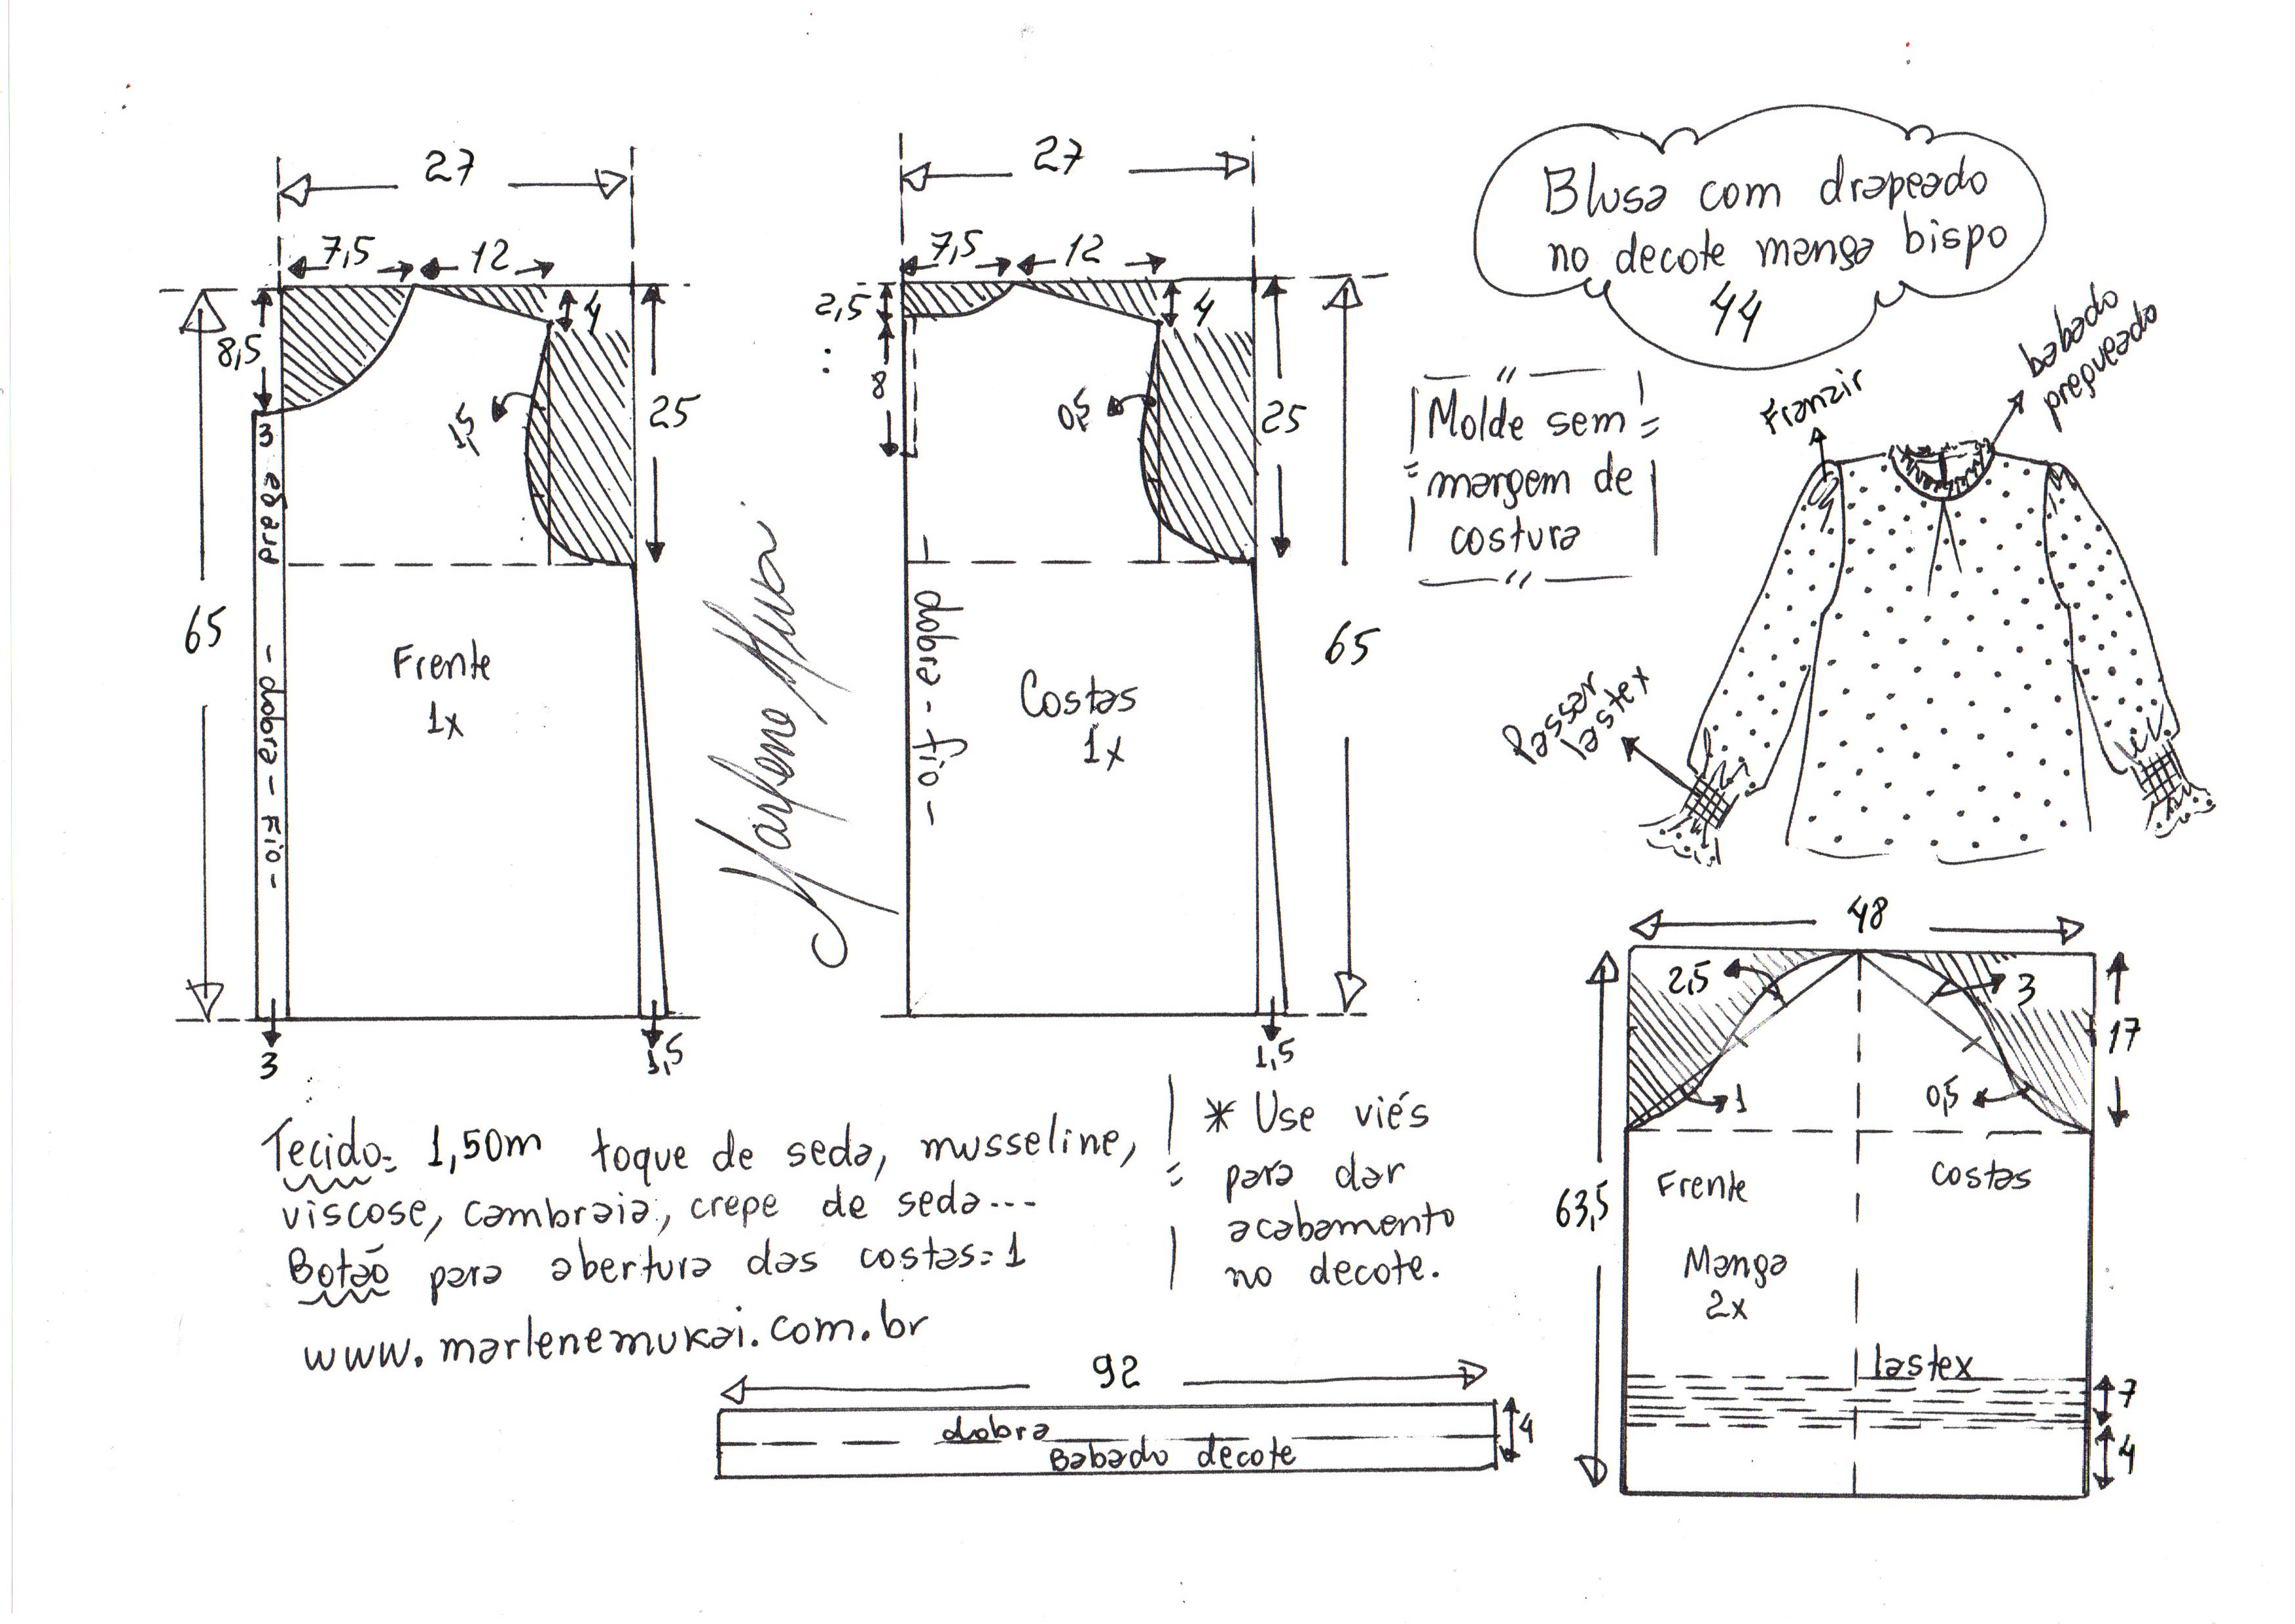 27
7,5
12
4
8,5
3
prega - dobra - Fio -
1,5
25
65
Frente
1x
3
1,5
Marlene Mukai
27
7,5
12
2,5
4
8
0,5
25
dobra - fio -
65
Costas
1x
1,5
Blusa com drapeado
no decote manga bispo
44
Molde sem
margem de
costura
Franzir
babado
pregueado
Passar
lastex
48
2,5
3
17
1
0,5
63,5
Frente
costas
Manga
2x
lastex
7
4
Tecido= 1,50m toque de seda, musseline,
viscose, cambraia, crepe de seda---
Botão para abertura das costas=1
www.marlenemukai.com.br
* Use viés
para dar
acabamento
no decote.
92
dobra
Babado decote
4